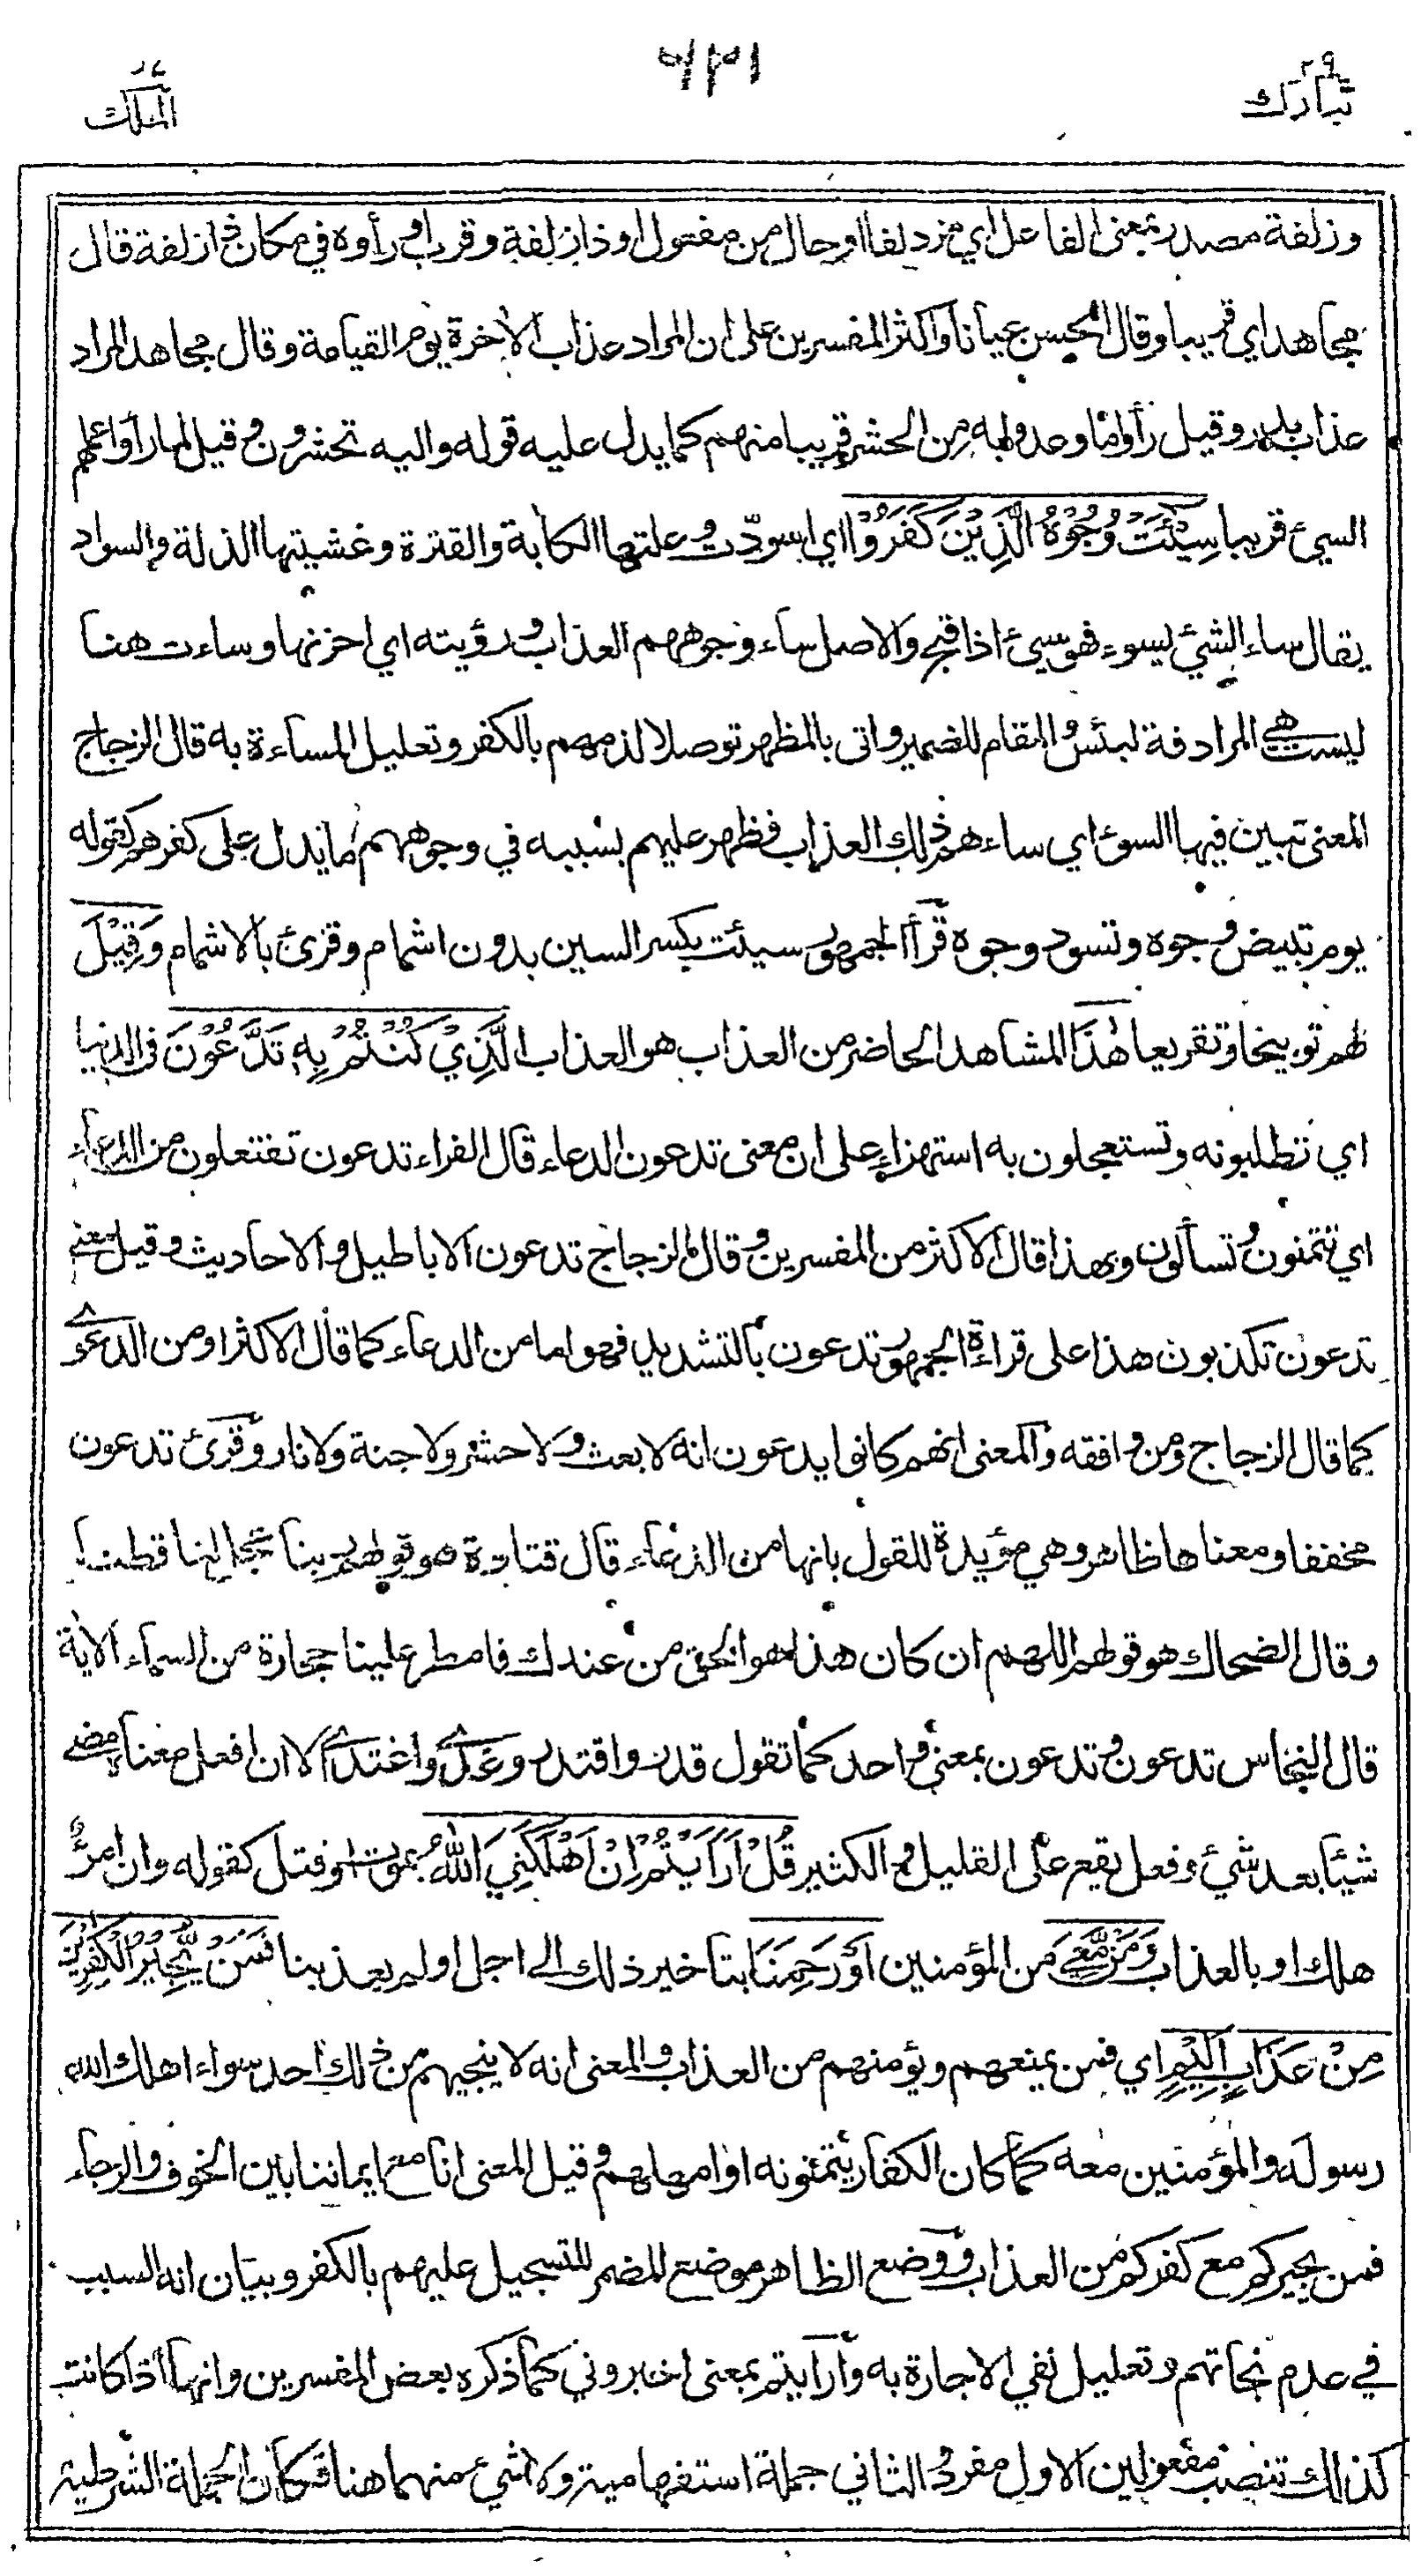 ٢٩ تبارك
٤٣١
٦٧ الملك
وزلفة مصدر بمعنى الفاعل اي مزدلفا اوحال من مفعول اوذا زلفة وقرب او رأوه في مكان ذا زلفة قال
مجاهد اي قريبا وقال الحسن عيانا واكثر المفسرين على ان المراد عذاب الآخرة يوم القيامة وقال مجاهد المراد
عذاب بدر وقيل رأوا ما وعدوا به من الحشر قريبا منهم كما يدل عليه قوله واليه تحشرون وقيل لما رأوا عملهم
السيئ قريبا سِيْئَتْ وُجُوْهُ الَّذِيْنَ كَفَرُوْا اي اسودّت وعلتها الكآبة والقترة وغشيتها الذلة والسواد
يقال ساء الشيئ يسوء فهو سيئ اذا قبح والاصل ساء وجوههم العذاب ورؤيته اي احزنها وساءت هنا
ليست هي المرادفة لبئس والمقام للضمير واتى بالمظهر توصلا لذمهم بالكفر وتعليل المساءة به قال الزجاج
المعنى تبين فيها السوء اي ساءهم ذلك العذاب فظهر عليهم بسببه في وجوههم ما يدل على كفرهم كقوله
يوم تبيض وجوه وتسود وجوه قرأ الجمهور سيئت بكسر السين بدون اشمام وقرئ بالاشمام وَقِيْلَ
لهم توبيخا وتقريعا هٰذَا المشاهد الحاضر من العذاب هو العذاب الَّذِيْ كُنْتُمْ بِهٖ تَدَّعُوْنَ في الدنيا
اي تطلبونه وتستعجلون به استهزاء على ان معنى تدعون الدعاء قال الفراء تدعون تفتعلون من الدعاء
اي تتمنون وتسألون وبهذا قال الاكثر من المفسرين وقال الزجاج تدعون الاباطيل والاحاديث وقيل معنى
تدعون تكذبون هذا على قراءة الجمهور تدعون بالتشديد فهو اما من الدعاء كما قال الاكثر او من الدعوى
كما قال الزجاج ومن وافقه والمعنى انهم كانوا يدعون انه لا بعث ولا حشر ولا جنة ولا نار وقرئ تدعون
مخففا ومعناها ظاهر وهي مؤيدة للقول بانها من الدعاء قال قتادة هو قولهم ربنا عجل لنا قطنا
وقال الضحاك هو قولهم اللهم ان كان هذا هو الحق من عندك فامطر علينا حجارة من السماء الآية
قال النحاس تدعون وتدعون بمعنى واحد كما تقول قدر واقتدر وغدى واغتدى الا ان افعل معناه مضى
شيئا بعد شيئ وفعل يقع على القليل والكثير قُلْ اَرَاَيْتُمْ اِنْ اَهْلَكَنِيَ اللّٰهُ بموت او قتل كقوله وان امرؤ
هلك او بالعذاب وَمَنْ مَّعِيَ من المؤمنين اَوْ رَحِمَنَا بتاخير ذلك الى اجل او لم يعذبنا فَمَنْ يُّجِيْرُ الْكٰفِرِيْنَ
مِنْ عَذَابٍ اَلِيْمٍ اي فمن يمنعهم ويؤمنهم من العذاب والمعنى انه لا ينجيهم من ذلك احد سواء اهلك الله
رسوله والمؤمنين معه كما كان الكفار يتمنونه او امهلهم وقيل المعنى انا مع ايماننا بين الخوف والرجاء
فمن يجيركم مع كفركم من العذاب ووضع الظاهر موضع المضمر للتسجيل عليهم بالكفر وبيان انه السبب
في عدم نجاتهم وتعليل نفي الاجارة به وأرأيتم بمعنى اخبروني كما ذكره بعض المفسرين وانها اذا كانت
كذلك تنصب مفعولين الاول مفرد والثاني جملة استفهامية ولا شيئ منهما هنا فكأن الجملة الشرطية